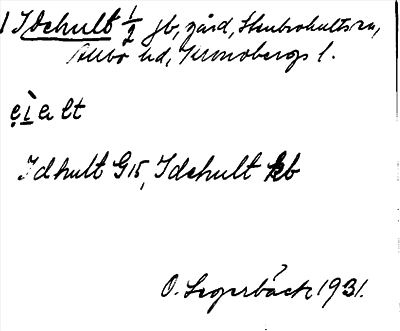 1 Idehult 1/2 jb, gård, Stenbrohults sn,
Allbo hd, Kronobergs l.
ẹi̱a lt
Idhult G15, Idehult kb
O. Segerbäck 1931.